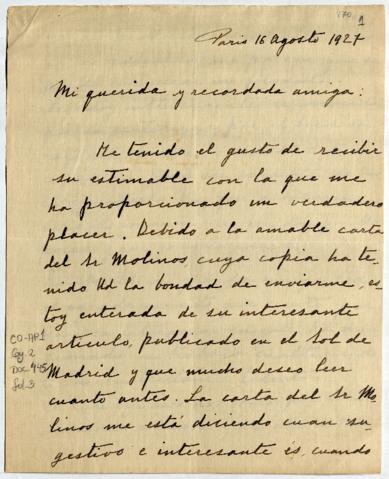 270
1
Paris 16 agosto 1927
Mi querida y recordada amiga:
He tenido el gusto de recibir
su estimable con la que me
ha proporcionado un verdadero
placer. Debido a la amable carta
del Sr Molinos cuya copia ha te-
nido Ud la bondad de enviarme, es-
toy enterada de su interesante
artículo, publicado en el Sol de
Madrid y que mucho deseo leer
cuanto antes. La carta del Sr Mo-
linos me está diciendo cuan su-
gestivo e interesante és, cuando
CO-AP1
Cj. 2
Doc 445
fol. 3